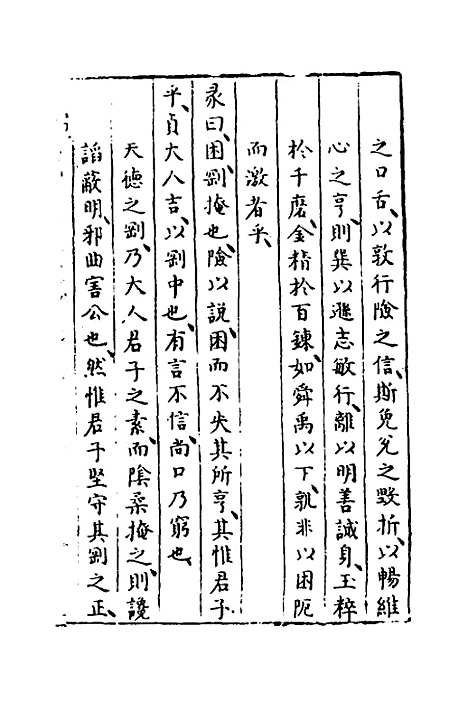 之口舌以敦行險之信斯免兊之毀折以暢維
心之亨則巽以遜志敏行離以明善誠身玉粹
於千磨金精於百鍊如舜禹以下孰非以困阨
而激者乎
彖曰困剛掩也險以說困而不失其所亨其惟君子
乎貞大人吉以剛中也有言不信尚口乃窮也
天德之剛乃大人君子之素而陰柔掩之則讒
謟蔽明邪曲害公也然惟君子堅守其剛之正